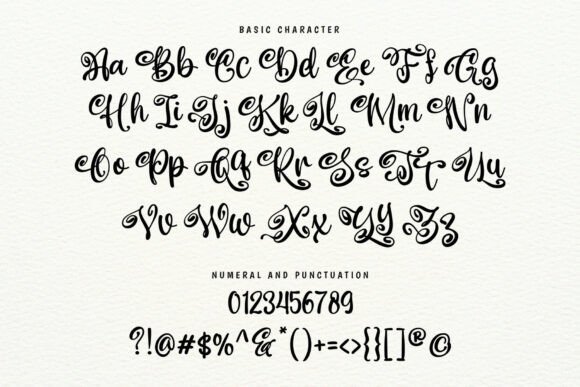 BASIC CHARACTER
Aa Bb Cc Dd Ee Ff Gg
Hh Ii Jj Kk Ll Mm Nn
Oo Pp Qq Rr Ss Tt Uu
Vv Ww Xx Yy Zz
NUMERAL AND PUNCTUATION
0123456789
?!@#$%^&*()+=<>{}[]®©